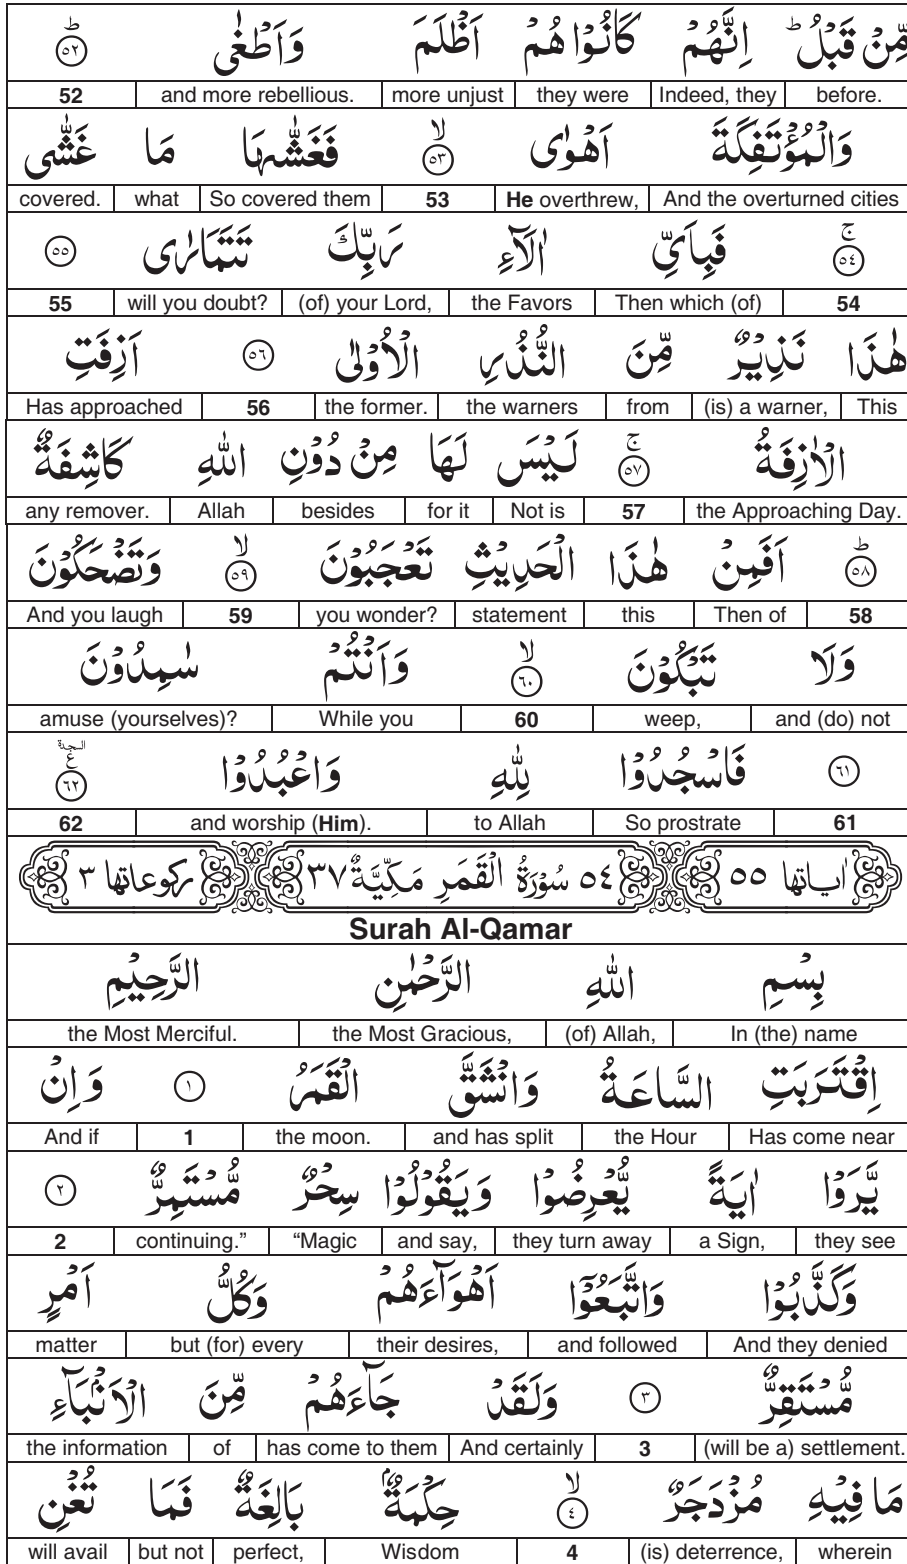 مِّنْ قَبْلُ ؕ اِنَّهُمْ كَانُوْا هُمْ اَظْلَمَ وَاَطْغٰى ؕ ٥٢
before. Indeed, they they were more unjust and more rebellious. 52
وَالْمُؤْتَفِكَةَ اَهْوٰى ۙ ٥٣ فَغَشّٰىهَا مَا غَشّٰى
And the overturned cities He overthrew, 53 So covered them what covered.
ۚ ٥٤ فَبِاَىِّ اٰلَآءِ رَبِّكَ تَتَمَارٰى ٥٥
54 Then which (of) the Favors (of) your Lord, will you doubt? 55
هٰذَا نَذِيْرٌ مِّنَ النُّذُرِ الْاُوْلٰى ٥٦ اَزِفَتِ
This (is) a warner, from the warners the former. 56 Has approached
الْاٰزِفَةُ ۚ ٥٧ لَـيْسَ لَهَا مِنْ دُوْنِ اللّٰهِ كَاشِفَةٌ
the Approaching Day. 57 Not is for it besides Allah any remover.
ؕ ٥٨ اَفَمِنْ هٰذَا الْحَدِيْثِ تَعْجَبُوْنَ ۙ ٥٩ وَتَضْحَكُوْنَ
58 Then of this statement you wonder? 59 And you laugh
وَلَا تَبْكُوْنَ ۙ ٦٠ وَاَنْتُمْ سٰمِدُوْنَ
and (do) not weep, 60 While you amuse (yourselves)?
٦١ فَاسْجُدُوْا لِلّٰهِ وَاعْبُدُوْا السجدة ع ٦٢
61 So prostrate to Allah and worship (Him). 62
اٰياتها ٥٥ ٥٤ سُوْرَةُ الْقَمَرِ مَكِّيَّةٌ ٣٧ ركوعاتها ٣
Surah Al-Qamar
بِسْمِ اللّٰهِ الرَّحْمٰنِ الرَّحِيْمِ
In (the) name (of) Allah, the Most Gracious, the Most Merciful.
اِقْتَـرَبَتِ السَّاعَةُ وَانْشَقَّ الْقَمَرُ ١ وَاِنْ
Has come near the Hour and has split the moon. 1 And if
يَّرَوْا اٰيَةً يُّعْرِضُوْا وَيَقُوْلُوْا سِحْرٌ مُّسْتَمِرٌّ ٢
they see a Sign, they turn away and say, “Magic continuing.” 2
وَكَذَّبُوْا وَاتَّبَعُوْۤا اَهْوَآءَهُمْ وَكُلُّ اَمْرٍ
And they denied and followed their desires, but (for) every matter
مُّسْتَقِرٌّ ٣ وَلَقَدْ جَآءَهُمْ مِّنَ الْاَنْۢبَآءِ
(will be a) settlement. 3 And certainly has come to them of the information
مَا فِيْهِ مُزْدَجَرٌ ۙ ٤ حِكْمَةٌ ۢ بَالِغَةٌ فَمَا تُغْنِ
wherein (is) deterrence, 4 Wisdom perfect, but not will avail